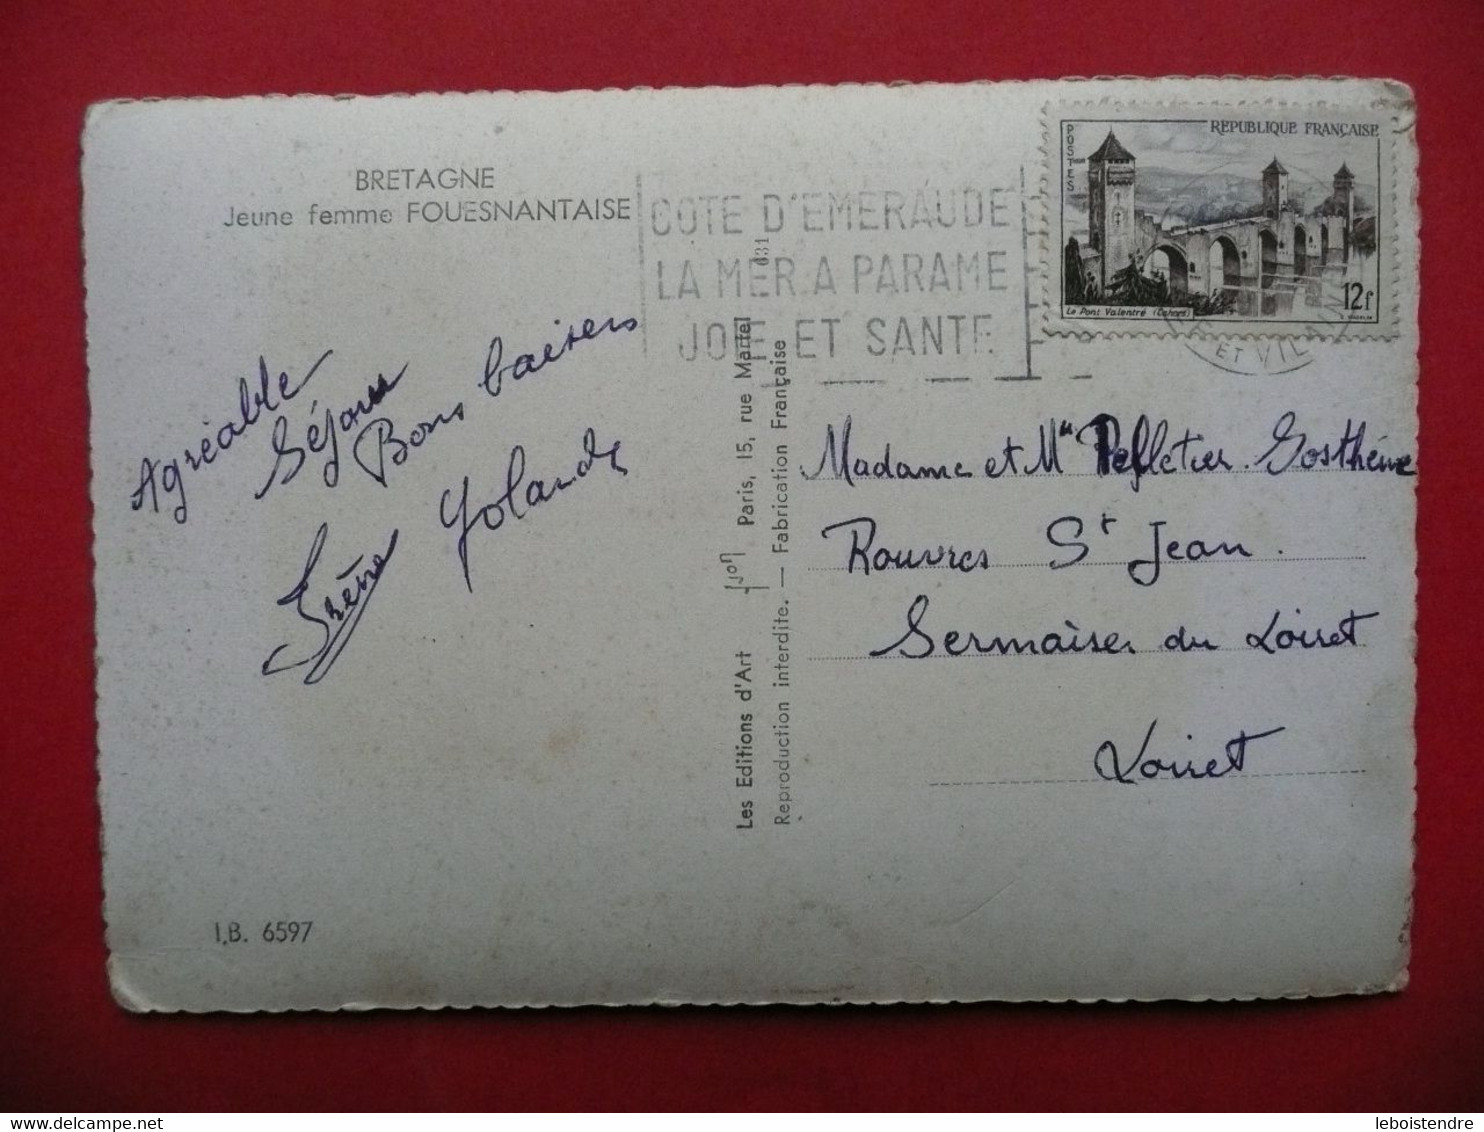 BRETAGNE
Jeune femme FOUESNANTAISE
COTE D'EMERAUDE
LA MER A PARAME
JOIE ET SANTE
POSTES
REPUBLIQUE FRANÇAISE
Le Pont Valentré (Cahors)
12f
ET VIL
631
Agréable
Séjour
Bons baisers
Yolande
Irène
Les Editions d'Art Jon Paris, 15, rue Martel
Reproduction interdite. — Fabrication Française
Madame et Mr Pelletier Gosthène
Rouvres St Jean.
Sermaises du Loiret
Loiret
I.B. 6597
leboistendre